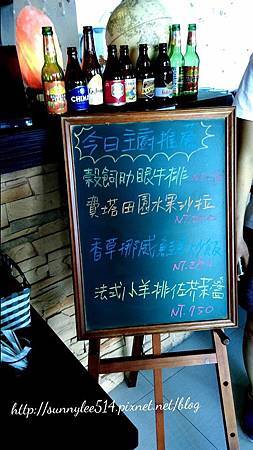 CHIMAY
今日主廚推薦
穀飼肋眼牛排
費塔田園水果沙拉
香草挪威鮭魚炒飯
NT.280
法式小羊排佐芥茉醬
NT.950
http://sunnylee514.pixnet.net/blog